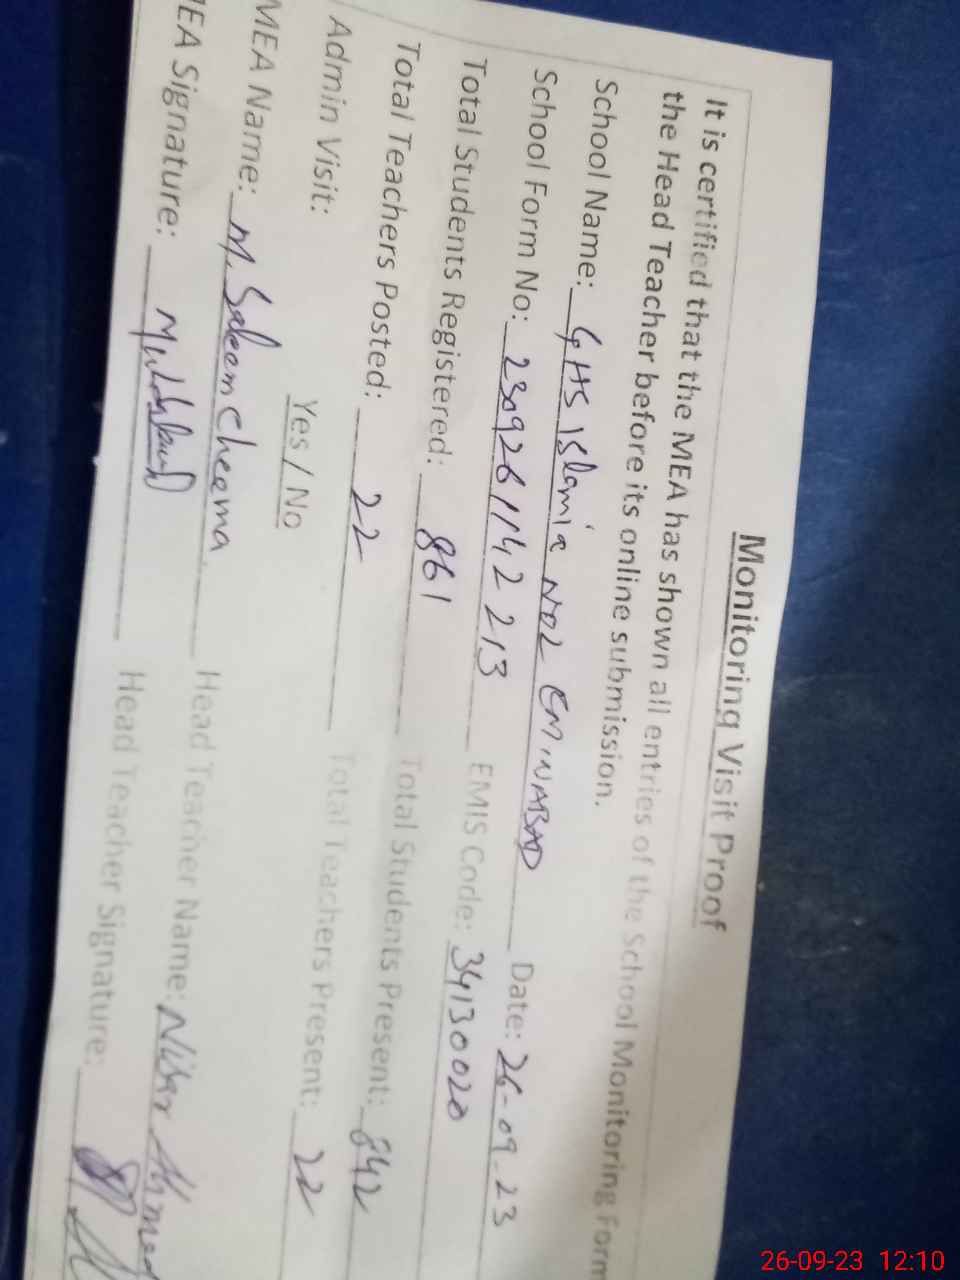 Monitoring Visit Proof
It is certified that the MEA has shown all entries of the School Monitoring Form
the Head Teacher before its online submission.
School Name: GHS Islamia NO2 EMINABAD Date: 26-09-23
School Form No: 2309261142213 EMIS Code: 34130020
Total Students Registered: 861 Total Students Present: 842
Total Teachers Posted: 22 Total Teachers Present: 22
Admin Visit: Yes / No
MEA Name: M. Saleem Cheema. Head Teacher Name: Nisar Ahmed
MEA Signature: Head Teacher Signature:
26-09-23 12:10